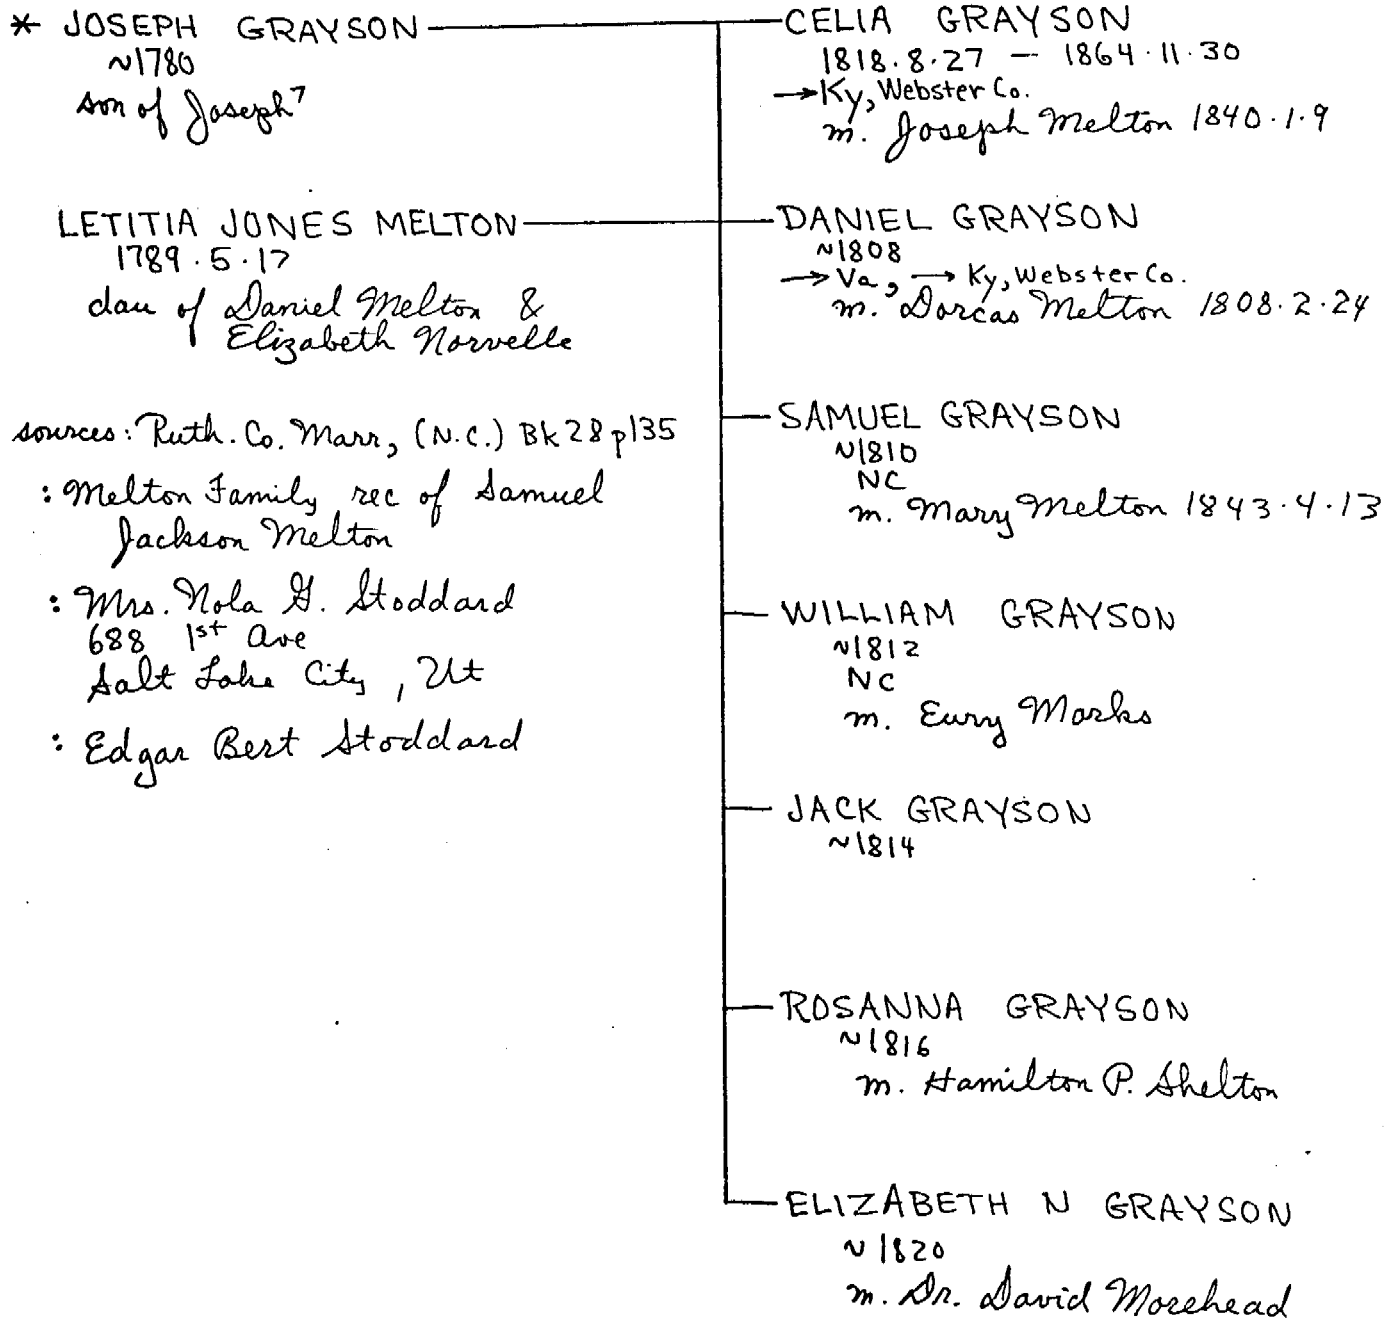 * JOSEPH GRAYSON
~1780
son of Joseph⁷
LETITIA JONES MELTON
1789.5.17
dau of Daniel Melton &
Elizabeth Norvelle
sources: Ruth. Co. Marr, (N.C.) Bk 28 p135
: Melton Family rec of Samuel
Jackson Melton
: Mrs. Nola G. Stoddard
688 1st Ave
Salt Lake City, Ut
: Edgar Bert Stoddard
CELIA GRAYSON
1818.8.27 — 1864.11.30
→ Ky, Webster Co.
m. Joseph Melton 1840.1.9
DANIEL GRAYSON
~1808
→ Va, → Ky, Webster Co.
m. Dorcas Melton 1808.2.24
SAMUEL GRAYSON
~1810
NC
m. Mary Melton 1843.4.13
WILLIAM GRAYSON
~1812
NC
m. Eury Marks
JACK GRAYSON
~1814
ROSANNA GRAYSON
~1816
m. Hamilton P. Shelton
ELIZABETH N GRAYSON
~1820
m. Dr. David Morehead